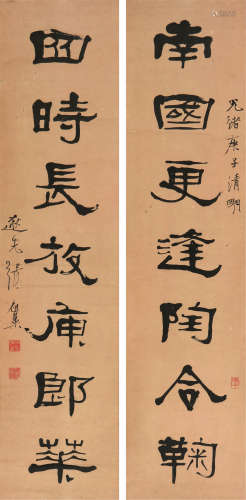 光緒庚子清明
南國更逢陶令鞠
四時長放庾郎華
先
集